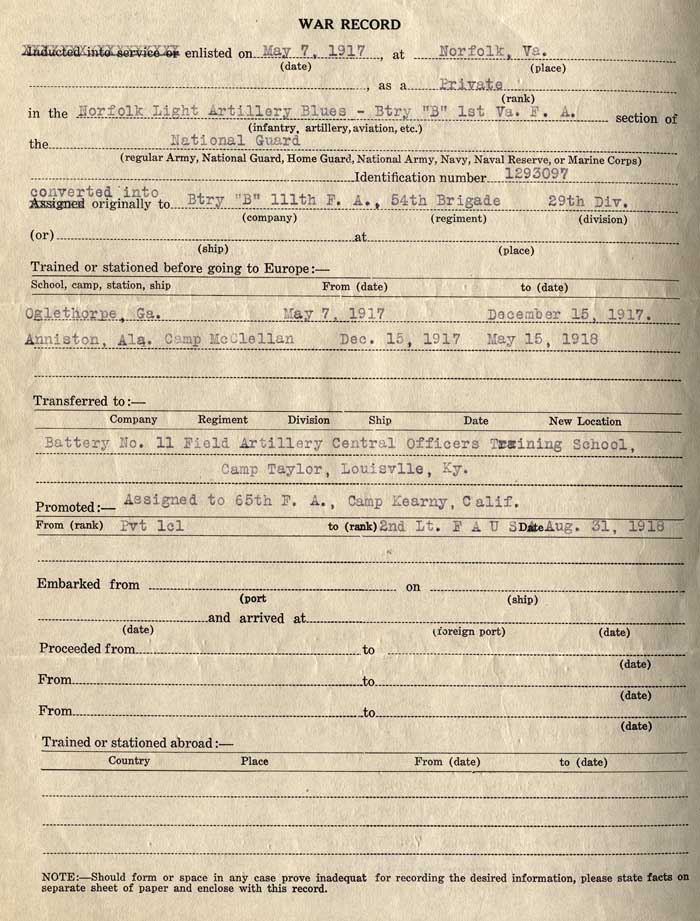 WAR RECORD
Inducted into service or enlisted on May 7, 1917, at Norfolk, Va.
(date) (place)
, as a Private
(rank)
in the Norfolk Light Artillery Blues - Btry "B" 1st Va. F. A. section of
(infantry, artillery, aviation, etc.)
the National Guard
(regular Army, National Guard, Home Guard, National Army, Navy, Naval Reserve, or Marine Corps)
Identification number 1293097
converted into
Assigned originally to Btry "B" 111th F. A., 54th Brigade 29th Div.
(company) (regiment) (division)
(or) at
(ship) (place)
Trained or stationed before going to Europe:—
School, camp, station, ship From (date) to (date)
Oglethorpe, Ga. May 7, 1917 December 15, 1917.
Anniston, Ala. Camp McClellan Dec. 15, 1917 May 15, 1918
Transferred to:—
Company Regiment Division Ship Date New Location
Battery No. 11 Field Artillery Central Officers Training School,
Camp Taylor, Louisvlle, Ky.
Promoted:— Assigned to 65th F. A., Camp Kearny, Calif.
From (rank) Pvt 1cl to (rank) 2nd Lt. F A U S A Date Aug. 31, 1918
Embarked from on
(port (ship)
and arrived at
(date) (foreign port) (date)
Proceeded from to
(date)
From to
(date)
From to
(date)
Trained or stationed abroad:—
Country Place From (date) to (date)
NOTE:—Should form or space in any case prove inadequat for recording the desired information, please state facts on
separate sheet of paper and enclose with this record.